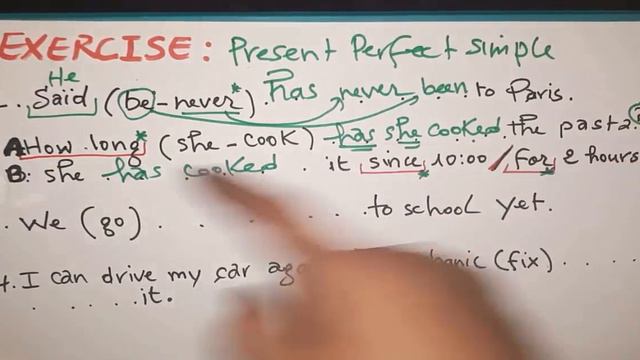 EXERCISE: Present Perfect simple
He
Said (be-never) has never been to Paris.
A How long (she-cook) has she cooked the pasta
B: she has cooked . it since 10:00 / for 2 hours
. We (go) . . . . . . . to school yet.
4. I can drive my car (fix) . . . . .
. . . . . it.